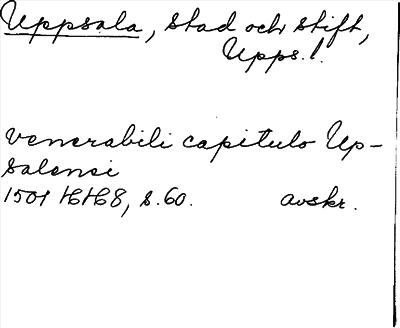 Uppsala, stad och stift,
Upps. l.
venerabili capitulo Up-
salensi
1501 HH8, s. 60. avskr.